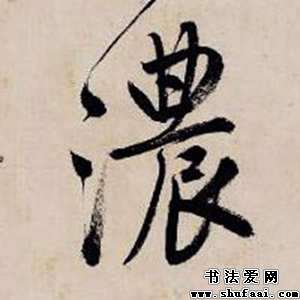 濃
书法爱网
www.shufaai.com